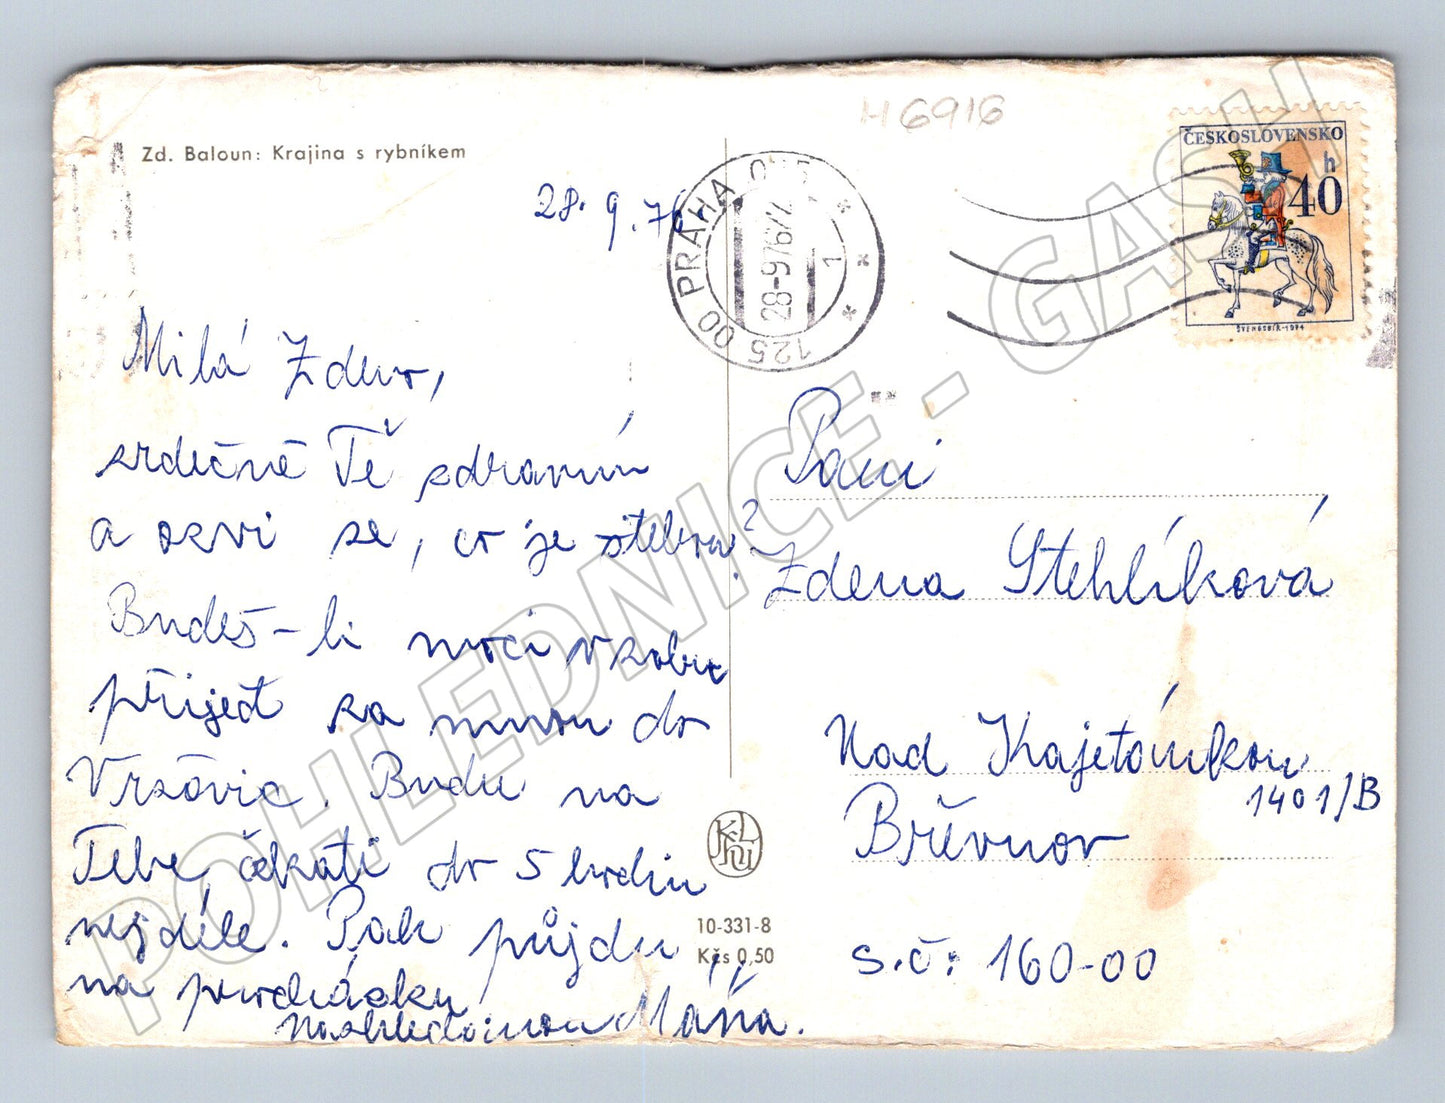 Zd. Baloun: Krajina s rybníkem
H6916
28. 9. 76
125 00 PRAHA 025
28-9 76
1
ČESKOSLOVENSKO
40 h
ŠVENGSBÍR-1974
Milá Zdeno,
srdečně Tě zdravím
a ozvi se, co je stebou?
Budeš-li moci v sobotu
přijeď za mnou do
Vršovic. Budu na
Tebe čekati do 5 hodin
nejdéle. Pak půjdu
na procházku
Nashledanou Máňa.
Paní
Zdena Stehlíková
Nad Kajetánkou
1401/B
Břevnov
s.č: 160-00
10-331-8
Kčs 0,50
POHLEDNICE - GASH